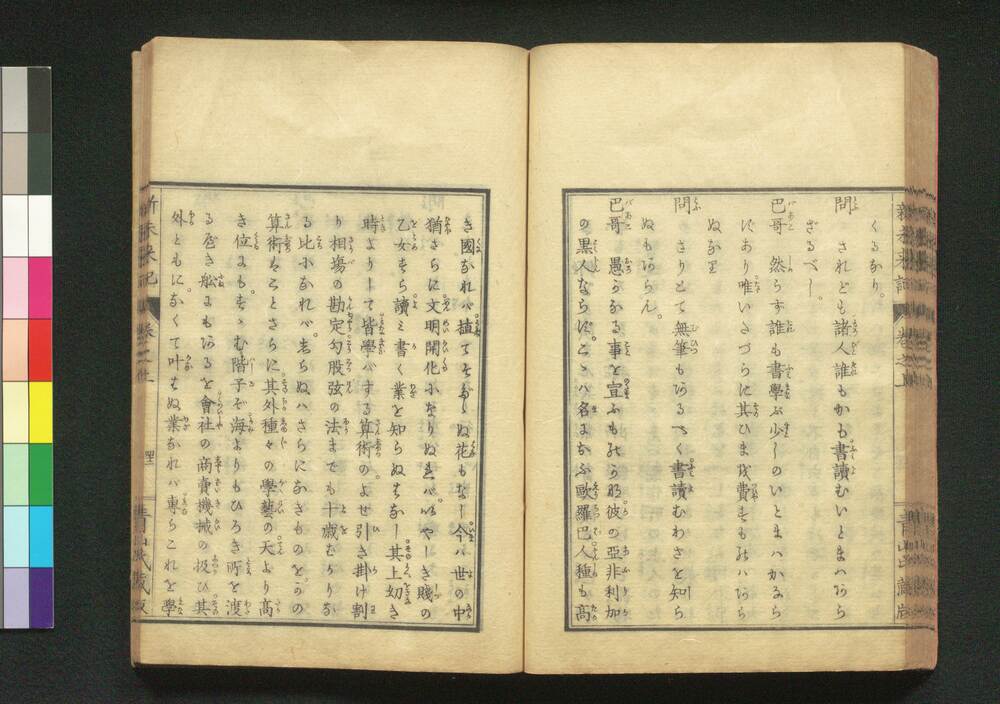 くるなり。
問 されども諸人誰もかも書讀むいとまハあら
ざるべし。
巴哥 然らす誰も書學ぶ少しのいとまハかなら
ずあり唯いたづらに其ひまを費すものハあら
ぬなり
問 さりとて無筆もあるべく書讀むわざを知ら
ぬもあらん。
巴哥 愚かなる事を宣ふものかな彼の亞非利加
の黒人ならバこそハ名におふ歐羅巴人種も高
き國なれバ植てそだゝぬ花もなし今ハ世の中
猶さらに文明開化になりぬれバ。いやしき賤の
乙女すら讀ミ書く業を知らぬもなし其上幼き
時よりして皆學バする算術の。よせ引き掛け割
り相塲の勘定勾股弦の法までも十歳ばかりな
る比になれバ。しらぬハさらになきものをかの
算術はことさらに。其外種々の學藝の天より高
き位にも。すゝむ階子ぞ海よりもひろき所を渡
るべき舩にもあるを會社の商賣機械の扱ひ其
外ともに。なくて叶はぬ業なれバ專らこれを學
新未來記 卷之上
青山氏藏版